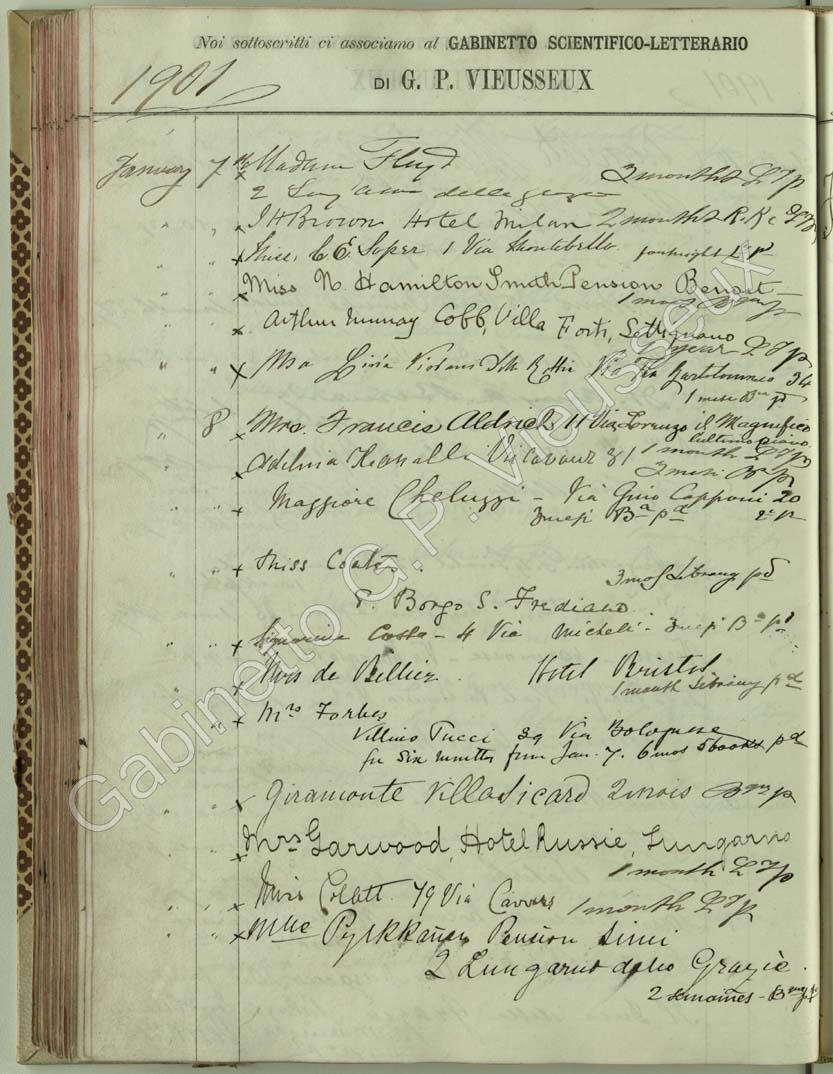 Noi sottoscritti ci associamo al GABINETTO SCIENTIFICO-LETTERARIO
DI G. P. VIEUSSEUX
1901
January 7th Madame Floyd 3 months L
2
J H Brown Hotel Milan 2 months
Miss C E Soper 1 Via Montebello fortnight L pd
Miss N. Hamilton Smith Pension Benoit
1 month
Arthur Murray Cobb, Villa Forti, Settignano
1 year
Via Fra Bartolommeo 34
1 mese
8 Mrs. Francis Aldrich 11 Via Lorenzo il Magnifico
ultimo piano
1 month
Via Cavour 31
3 mesi
Maggiore Cheluzzi - Via Gino Capponi 20
3 mesi Ba pd
Miss Coates
3 mos Library pd
Borgo S. Frediano
Signorina Costa - 4 Via Micheli - 3 mesi Ba pd
Mrs de Billier Hotel Bristol
1 month Library pd
Mrs Forbes
Villino Tucci 39 Via Bolognese
for six months from Jan. 7. 6 mos 5 books pd
Giramonte Villa Sicard 2 mois
Mrs Garwood, Hotel Russie, Lungarno
1 month
Miss 79 Via Cavour 1 month
Mme Pension Simi
2 Lungarno delle Grazie.
2 semaines -
Gabinetto G.P. Vieusseux